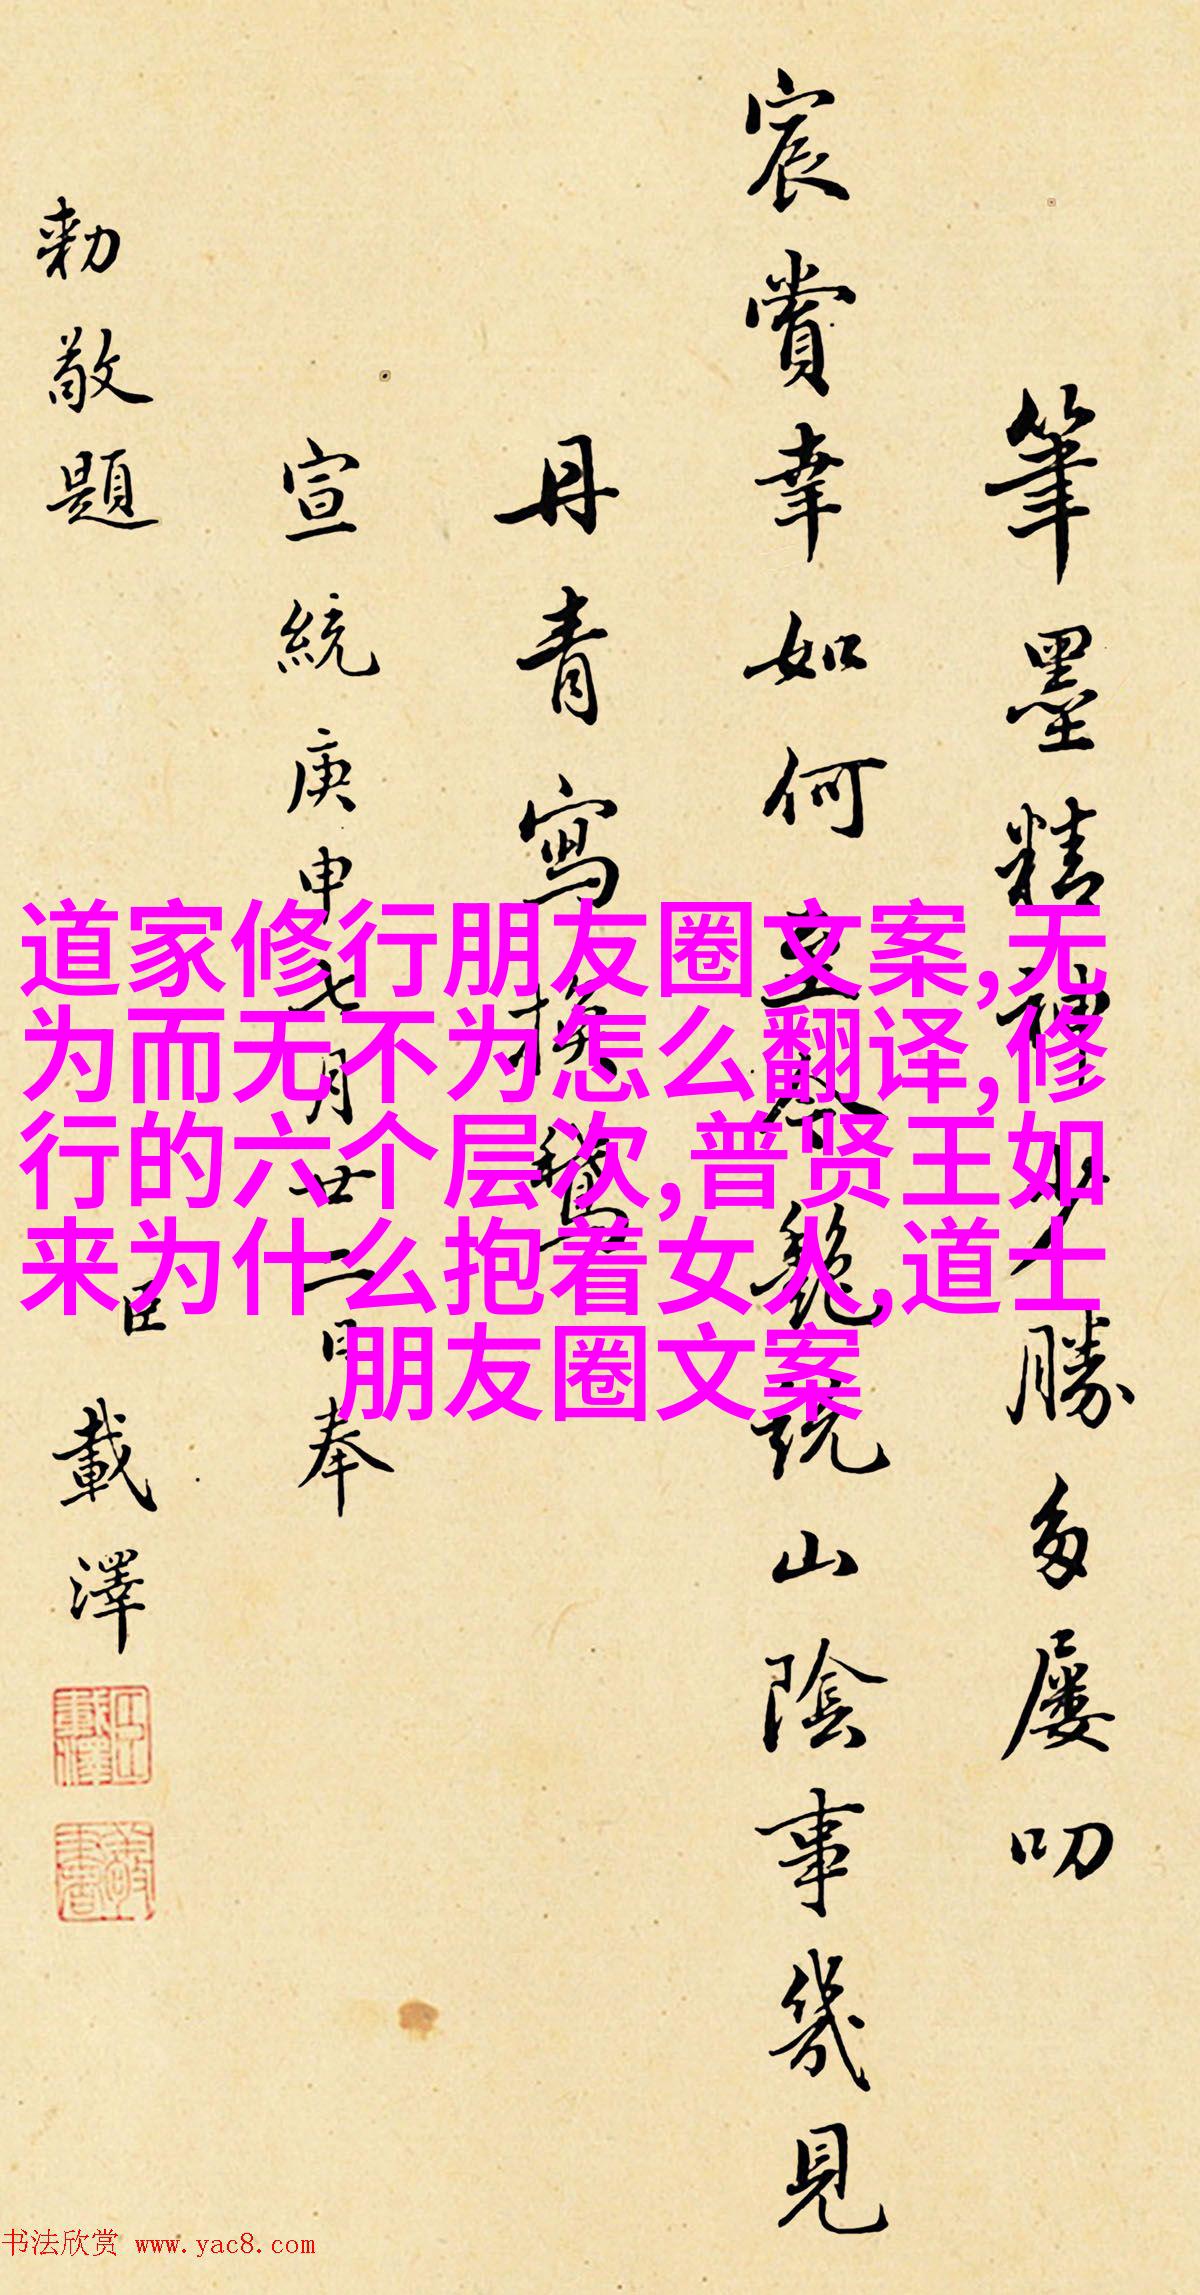 筆墨精神少勝多屢叨
宸賞幸如何至今艷說山陰事幾見
丹青寫換鵝
宣統庚申七月廿二日奉
勅敬題 臣 載澤
道家修行朋友圈文案,无
为而无不为怎么翻译,修
行的六个层次,普贤王如
来为什么抱着女人,道士
朋友圈文案
书法欣赏 www.yac8.com